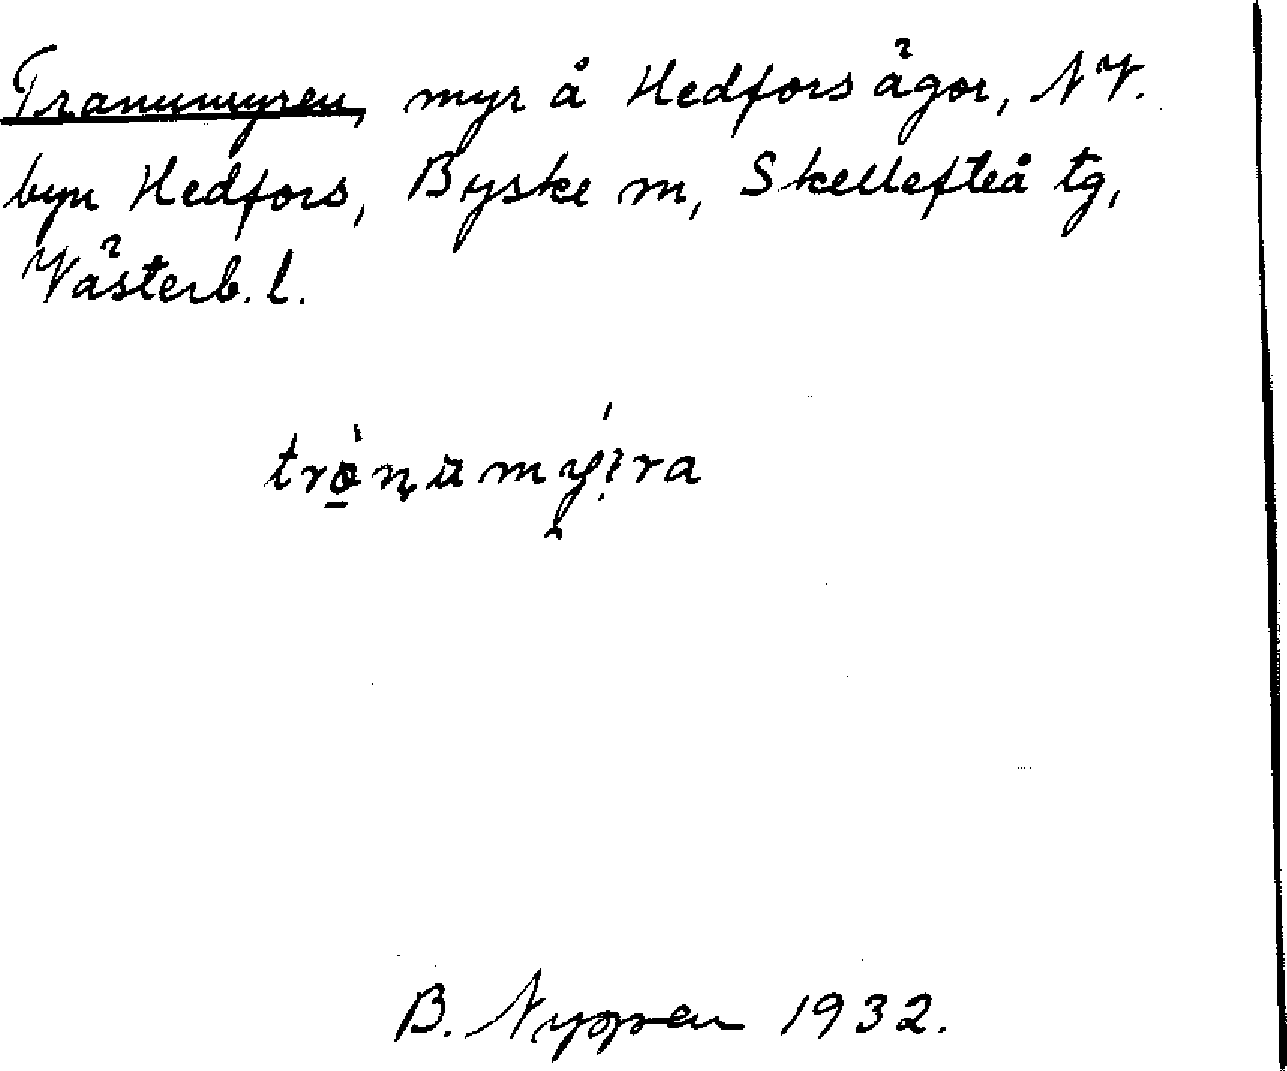 Tranumyren, myr å Hedfors ägor, NV.
byn Hedfors, Byske sn, Skellefteå tg,
Västerb. l.
trò̱numý:ra
B. 1932.